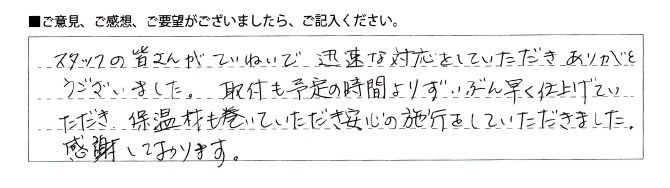 ■ご意見、ご感想、ご要望がございましたら、ご記入ください。
スタッフの皆さんがていねいで 迅速な対応をしていただき ありがと
うございました。 取付も予定の時間よりずいぶん早く仕上げてい
ただき、保温材も巻いていただき安心の施行をしていただきました。
感謝しております。